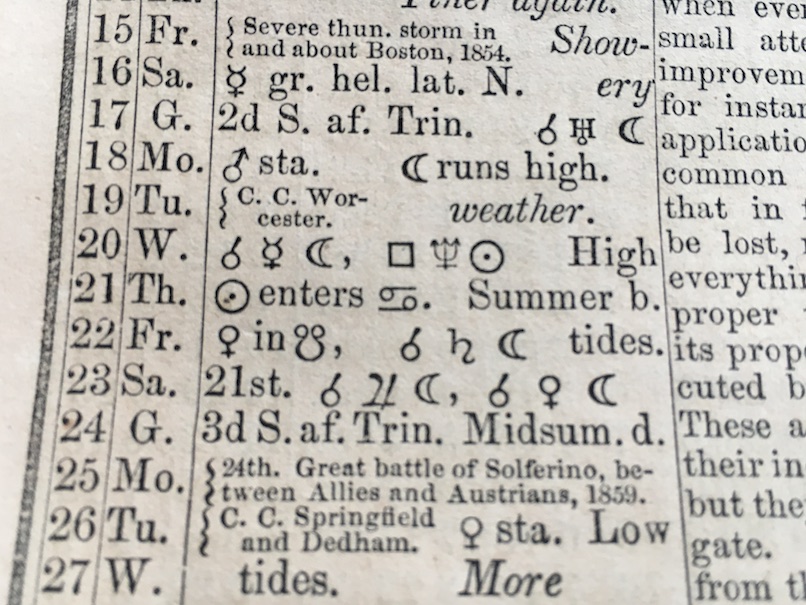 Finer again.
15 Fr. { Severe thun. storm in
and about Boston, 1854. Show-
16 Sa. ☿ gr. hel. lat. N. ery
17 G. 2d S. af. Trin. ☌ ♅ ☾
18 Mo. ♂ sta. ☾ runs high.
19 Tu. { C. C. Wor-
cester. weather.
20 W. ☌ ☿ ☾, □ ♆ ☉ High
21 Th. ☉ enters ♋. Summer b.
22 Fr. ♀ in ☋, ☌ ♄ ☾ tides.
23 Sa. 21st. ☌ ♃ ☾, ☌ ♀ ☾
24 G. 3d S. af. Trin. Midsum. d.
25 Mo. { 24th. Great battle of Solferino, be-
tween Allies and Austrians, 1859.
26 Tu. { C. C. Springfield
and Dedham. ♀ sta. Low
27 W. tides. More
when
small
for
common
that in
be lost,
proper
its
These
their in
but the
gate.
from